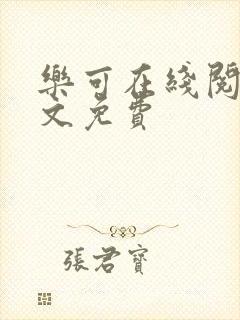 樂可在綫閱
文免費
張君寶